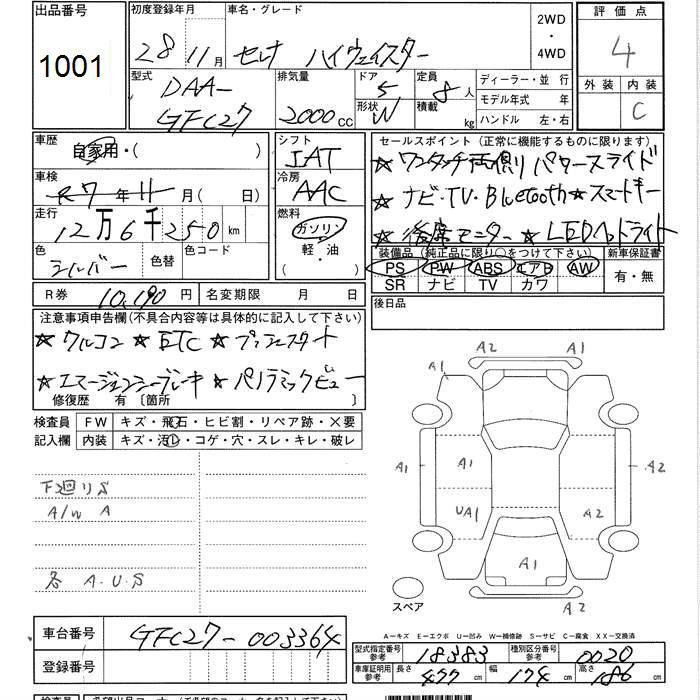 出品番号 初度登録年月 車名・グレード 2WD・4WD 評価点
1001 28年11月 セレナ ハイウェイスター 4
型式 排気量 ドア 定員 ディーラー・並行 外装 内装
DAA-GFC27 2000cc 5 8人 モデル年式 年 C
形状 W 積載 kg ハンドル 左・右
車歴 シフト セールスポイント (正常に機能するものに限ります)
自家用・( ) IAT ★ワンタッチ両側パワースライド
車検 冷房 ★ナビ・TV・Bluetooth★スマートキー
R7年11月( 日) AAC ★後席モニター ★LEDヘッドライト
走行 燃料 装備品 (純正品に限り○をつけて下さい) 新車保証書
12万6千250km ガソリン・軽・油 PS PW ABS エアB AW 有・無
色 色替 色コード ( ) SR ナビ TV カワ
シルバー
R券 10,190円 名変期限 月 日 後日品
注意事項申告欄(不具合内容等は具体的に記入して下さい)
★クルコン ★ETC ★プッシュスタート
★エマージェンシーブレーキ ★パノラミックビュー
修復歴 有 〔箇所 〕
検査員 FW キズ・飛石・ヒビ割・リペア跡・×要
記入欄 内装 キズ・汚レ・コゲ・穴・スレ・キレ・破レ
下廻りS
A/W A
各 A.U.S
A2 A1
A1
A1 A1 A2
UA1 A2
A1
A2
スペア
A−キズ E−エクボ U−凹み W−補修跡 S−サビ C−腐食 XX−交換済
車台番号 GFC27-003364
登録番号
型式指定番号 参考 18383 種別区分番号 参考 0020
車庫証明用 参考 長さ 477cm 幅 174cm 高さ 186cm